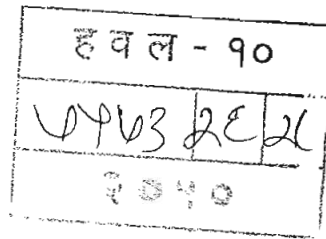 हवल - १०
७५७३ २६ २८
२०१०